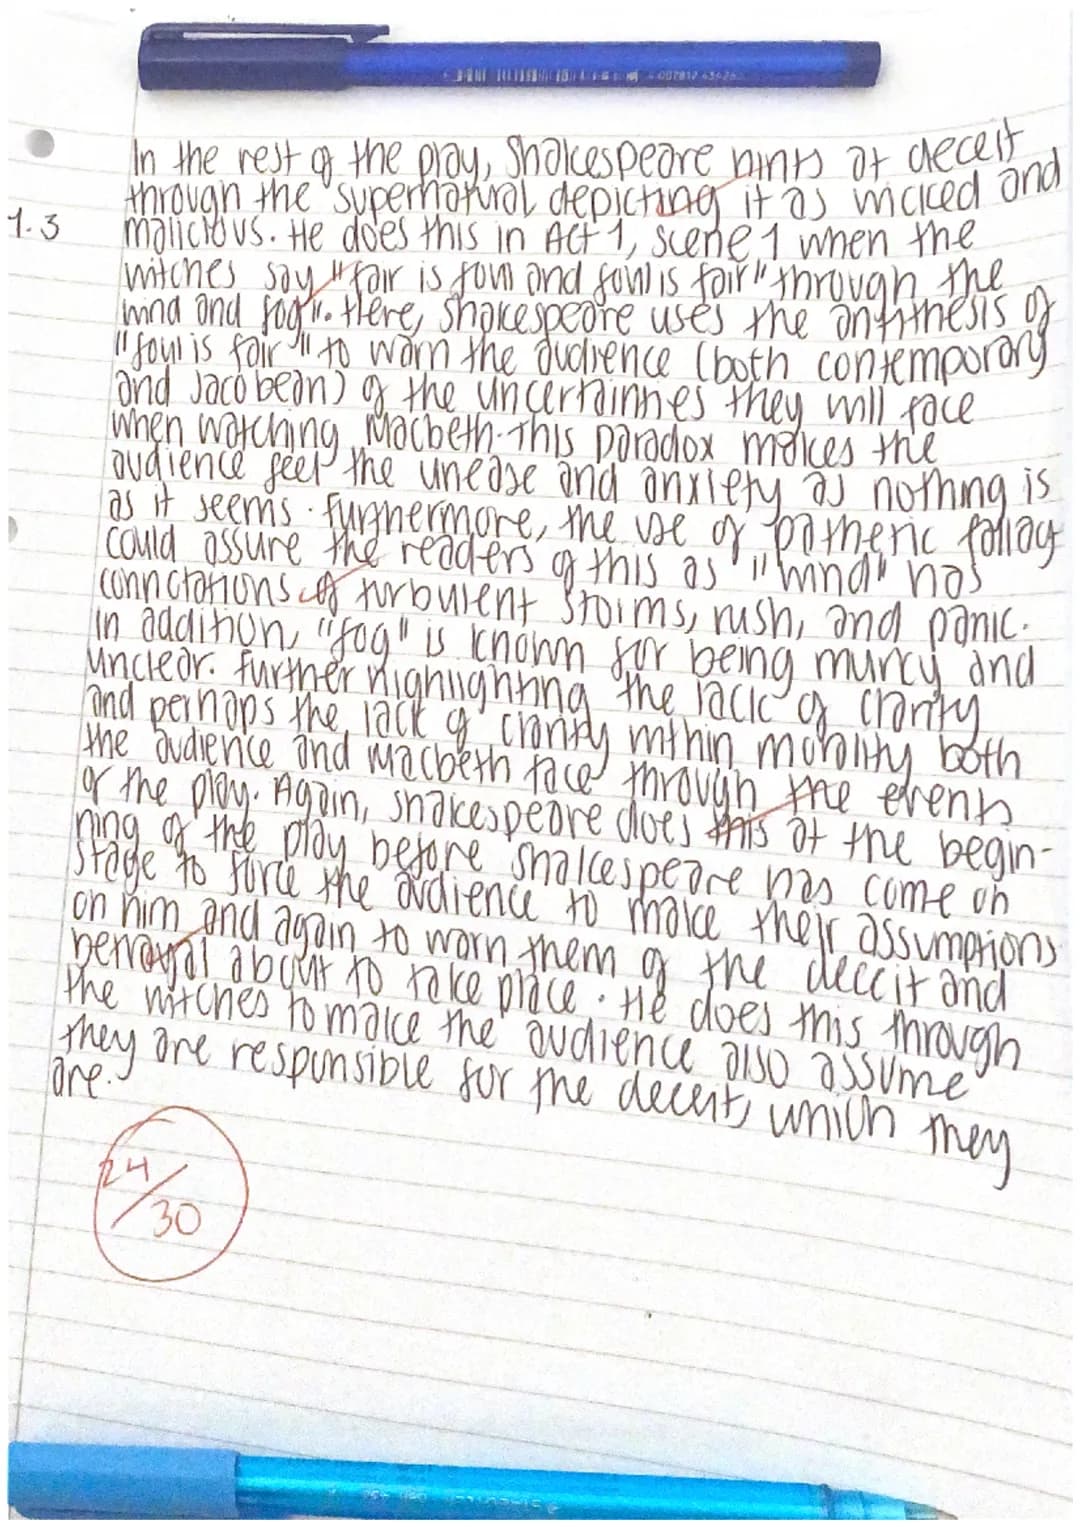 In the rest of the play, Shakespeare hints at deceit
through the supernatural depicting it as wicked and
1.3 malicious. He does this in Act 1, scene 1 when the
witches say "fair is foul and foul is fair" through the
wind and fog". Here, Shakespeare uses the antithesis of
"foul is fair" to warn the audience (both contemporary
and Jacobean) of the uncertainties they will face
when watching Macbeth. This paradox makes the
audience feel the unease and anxiety as nothing is
as it seems. Furthermore, the use of pathetic fallacy
could assure the readers of this as "wind" has
connotations of turbulent storms, rush, and panic.
In addition, "fog" is known for being murcy and
unclear. Further highlighting the lack of clarity
and perhaps the lack of clarity within morality both
the audience and Macbeth face through the events
of the play. Again, Shakespeare does this at the begin-
ning of the play before Shakespeare has come on
stage to force the audience to make their assumptions
on him and again to warn them of the deceit and
betrayal about to take place. He does this through
the witches to make the audience also assume
they are responsible for the deceit, which they
are.
24/30